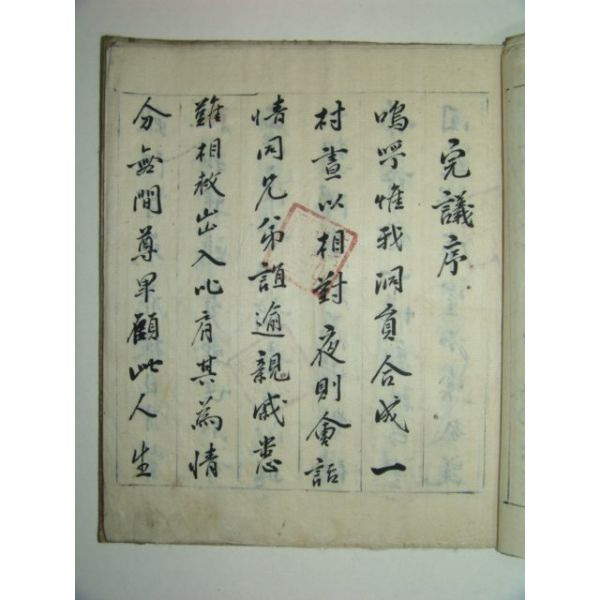 完議序
嗚呼惟我洞員合成一
村晝以相對夜則會話
情同兄弟誼逾親戚患
難相救出入比肩其為情
分無間尊卑顧此人生